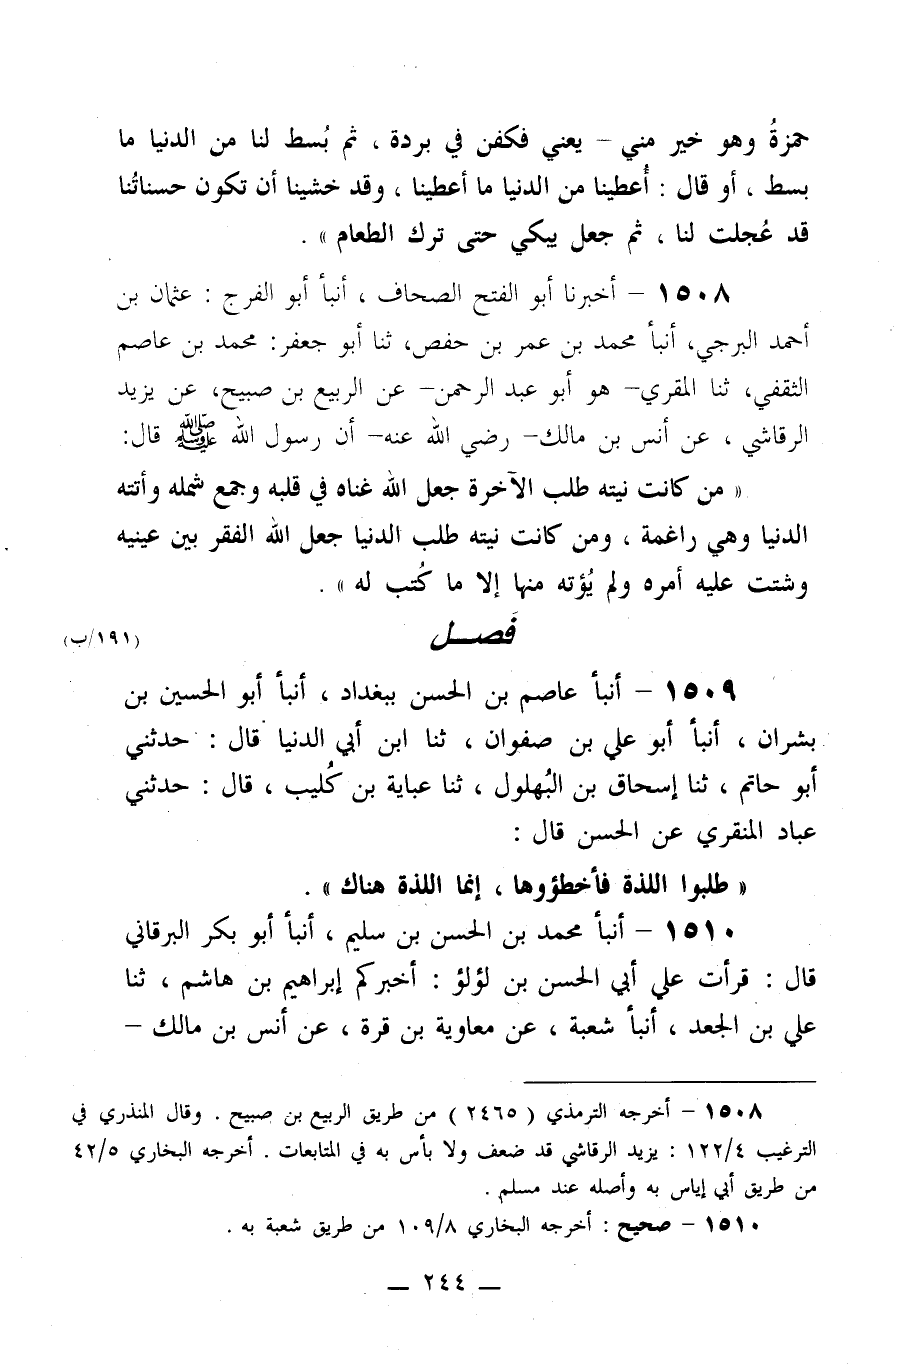 حمزةُ وهو خير مني – يعني فكفن في بردة ، ثم بُسط لنا من الدنيا ما
بسط ، أو قال : أُعطينا من الدنيا ما أعطينا ، وقد خشينا أن تكون حسناتُنا
قد عُجلت لنا ، ثم جعل يبكي حتى ترك الطعام » .
١٥٠٨ – أخبرنا أبو الفتح الصحاف ، أنبأ أبو الفرج : عثمان بن
أحمد البرجي، أنبأ محمد بن عمر بن حفص، ثنا أبو جعفر: محمد بن عاصم
الثقفي، ثنا المقري– هو أبو عبد الرحمن– عن الربيع بن صبيح، عن يزيد
الرقاشي ، عن أنس بن مالك– رضي الله عنه– أن رسول الله ﷺ قال:
« من كانت نيته طلب الآخرة جعل الله غناه في قلبه وجمع شمله وأتته
الدنيا وهي راغمة ، ومن كانت نيته طلب الدنيا جعل الله الفقر بين عينيه
وشتت عليه أمره ولم يُؤته منها إلا ما كُتب له » .
فَصــل (١٩١/ب)
١٥٠٩ – أنبأ عاصم بن الحسن ببغداد ، أنبأ أبو الحسين بن
بشران ، أنبأ أبو علي بن صفوان ، ثنا ابن أبي الدنيا قال : حدثني
أبو حاتم ، ثنا إسحاق بن البُهلول ، ثنا عباية بن كُليب ، قال : حدثني
عباد المنقري عن الحسن قال :
« طلبوا اللذة فأخطؤوها ، إنما اللذة هناك » .
١٥١٠ – أنبأ محمد بن الحسن بن سليم ، أنبأ أبو بكر البرقاني
قال : قرأت علي أبي الحسن بن لؤلؤ : أخبركم إبراهيم بن هاشم ، ثنا
علي بن الجعد ، أنبأ شعبة ، عن معاوية بن قرة ، عن أنس بن مالك –
١٥٠٨ – أخرجه الترمذي ( ٢٤٦٥ ) من طريق الربيع بن صبيح . وقال المنذري في
الترغيب ١٢٢/٤ : يزيد الرقاشي قد ضعف ولا بأس به في المتابعات . أخرجه البخاري ٤٢/٥
من طريق أبي إياس به وأصله عند مسلم .
١٥١٠ – صحيح : أخرجه البخاري ١٠٩/٨ من طريق شعبة به .
— ٢٤٤ —